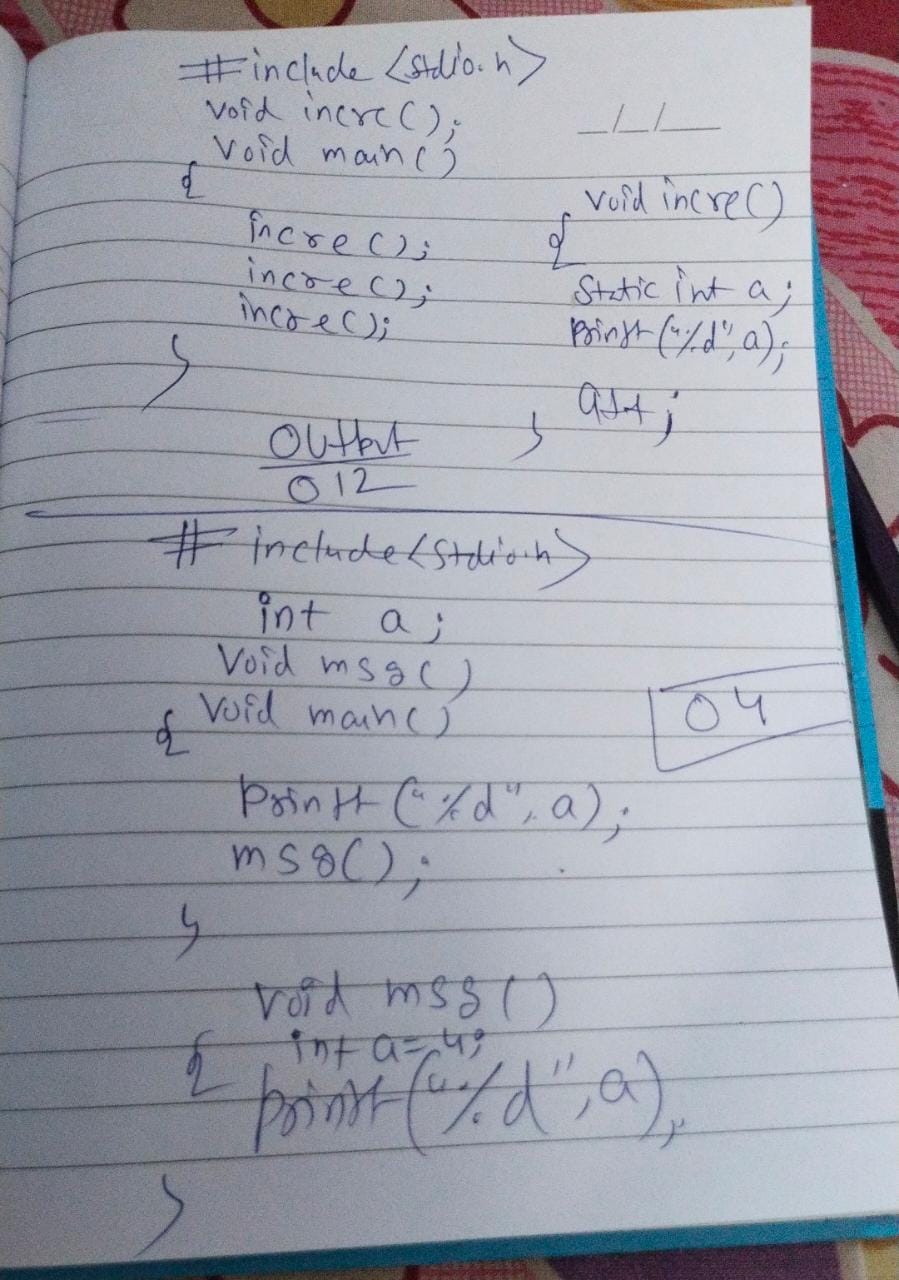 #include <stdio.h>
void incre();
void main()
{
incre();
incre();
incre();
}
void incre()
{
static int a;
printf("%d", a);
a++;
}
Output
0 1 2
#include <stdio.h>
int a;
void msg()
void main()
{
printf("%d", a);
msg();
}
04
void msg()
{ int a=4;
printf("%d", a);
}